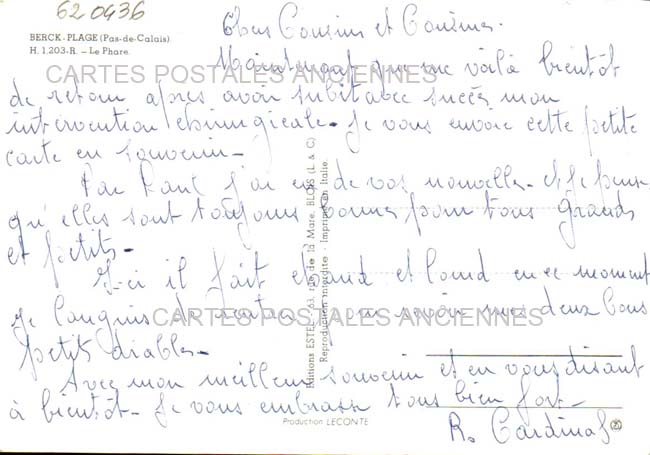 620436
BERCK-PLAGE (Pas-de-Calais)
H. 1.203-R. - Le Phare.
Chers Cousins et Cousines.
Maintenant que me voilà bientôt
CARTES POSTALES ANCIENNES
de retour après avoir subit avec succès mon
intervention chirurgicale - je vous envoie cette petite
carte en souvenir -
Par Paul j'ai eu de vos nouvelles - et je pense
qu'elles sont toujours bonnes pour tous grands
et petits -
Ici il fait chaud et lourd en ce moment
Je languis de rentrer pour revoir mes deux bons
CARTES POSTALES ANCIENNES
petits diables -
Avec mon meilleur souvenir et en vous disant
à bientôt - Je vous embrasse tous bien fort -
R. Cardinal
Editions ESTEL, 63, rue de la Mare, BLOIS (L. & C)
Reproduction interdite - Imprimé en Italie.
Production LECONTE